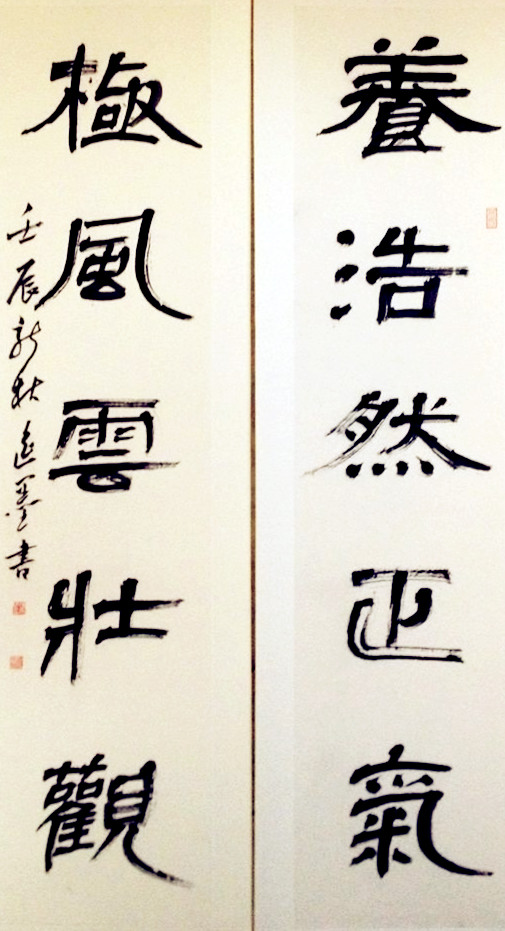 養浩然正氣
極風雲壯觀
壬辰新秋遠墨書